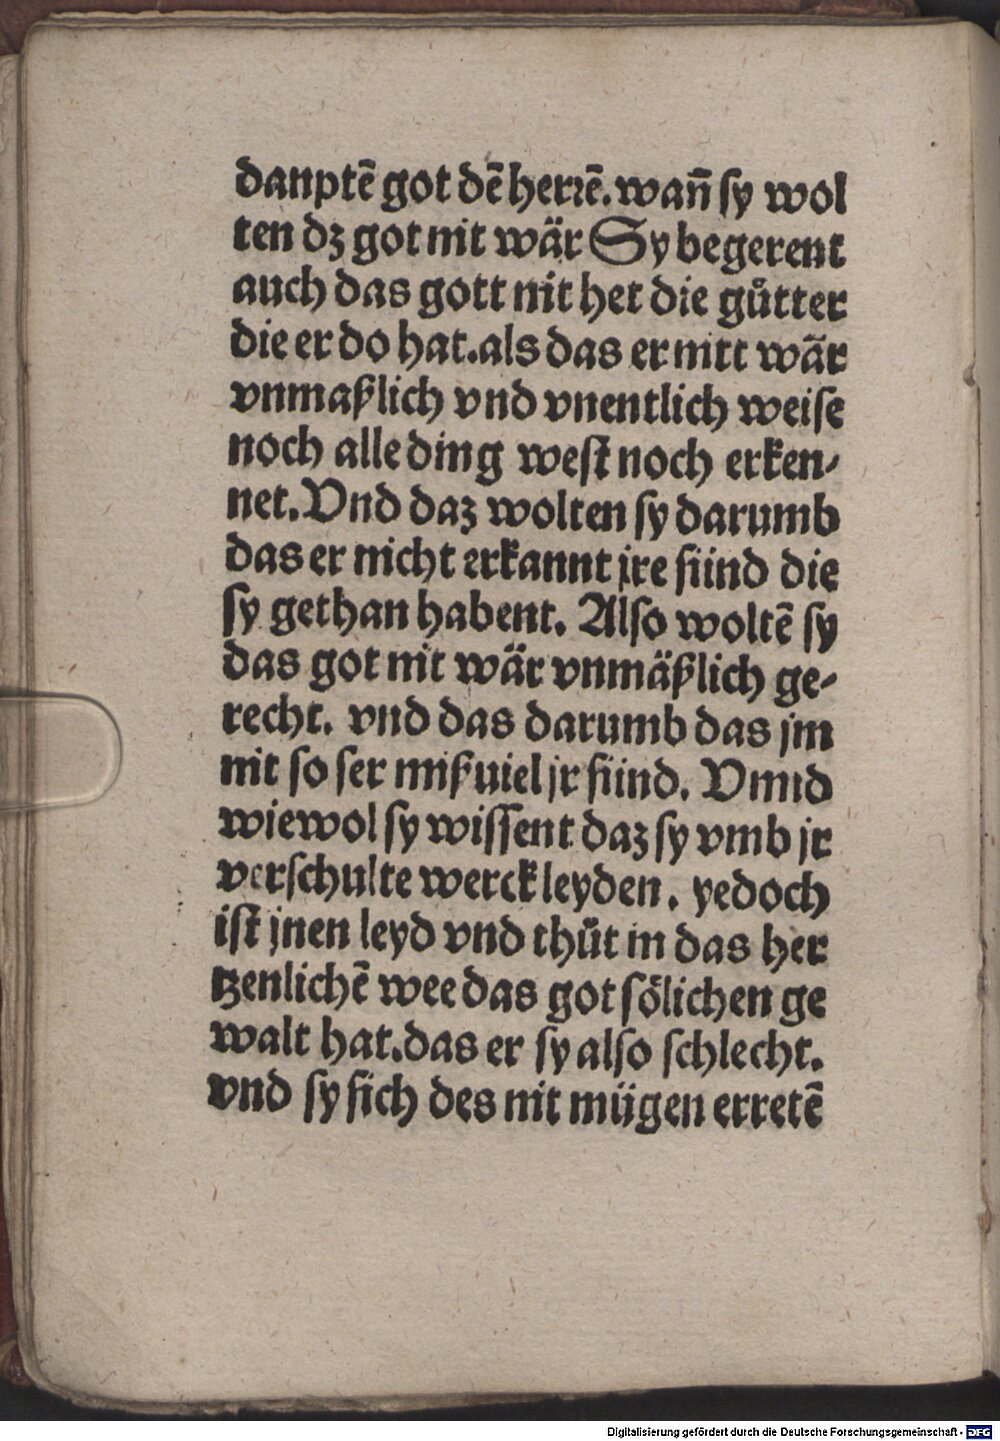 danptē got dē herrē. wañ sy wol
ten dz got nit wär Sy begerent
auch das gott nit het die gůtter
die er do hat. als das er nitt wär
vnmaßlich vnd vnentlich weise
noch alle ding west noch erken-
net. Vnd daz wolten sy darumb
das er nicht erkannt jre sünd die
sy gethan habent. Also woltē sy
das got nit wär vnmäßlich ge-
recht. vnd das darumb das jm
nit so ser mißuiel jr sünd. Vnnd
wiewol sy wissent daz sy vmb jr
verschulte werck leyden. yedoch
ist jnen leyd vnd thůt in das her
tzenlichē wee das got sölichen ge
walt hat. das er sy also schlecht.
vnd sy sich des nit mügen erretē
Digitalisierung gefördert durch die Deutsche Forschungsgemeinschaft - DFG